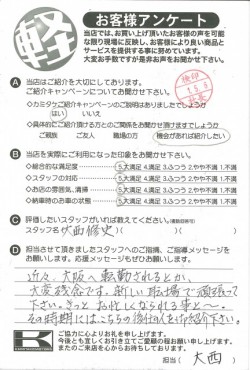 軽
お客様アンケート
当店では、お買い上げ頂いたお客様の声を可能
な限り現場に反映し、お客様により良い商品と
サービスを提供する事に努めています。
大変お手数ですが是非お声をお聞かせ下さい。
検印
1.5.8
A 当店はご紹介を大切にしております。
ご紹介キャンペーンについてお聞かせ下さい。
◇カミタケご紹介キャンペーンのご説明はありましたでしょうか
はい いいえ
◇具体的にご紹介頂ける方とのご関係をお聞かせ頂けますでしょうか
ご親族 ご友人 職場の方 機会があれば紹介したい
B 当店を実際にご利用になった印象をお聞かせ下さい。
◇総合的な満足度 5.大満足 4.満足 3.ふつう 2.やや不満 1.不満
◇スタッフの対応 5.大満足 4.満足 3.ふつう 2.やや不満 1.不満
◇お店の雰囲気、清掃 5.大満足 4.満足 3.ふつう 2.やや不満 1.不満
◇納車時のお車の状態 5.大満足 4.満足 3.ふつう 2.やや不満 1.不満
C 評価したいスタッフがいれば教えてください。(複数回答可)
スタッフ名( 大西修史 )( )( )
D 担当させて頂きましたスタッフへのご指摘、ご指導メッセージを
お願いします。応援メッセージもぜひお願いします。
近々、大阪へ転勤されるとか、
大変残念です。新しい職場で頑張って
下さい。きっと お忙しくなられる事と〜
その時期にはこちらの後任の人をご紹介下さい。
ご協力に心よりお礼を申し上げます。
今後とも宜しくお引き立てご愛顧の程お願い申し上げます。
またのご来店を心からお待ちしております。
担当( 大西 )